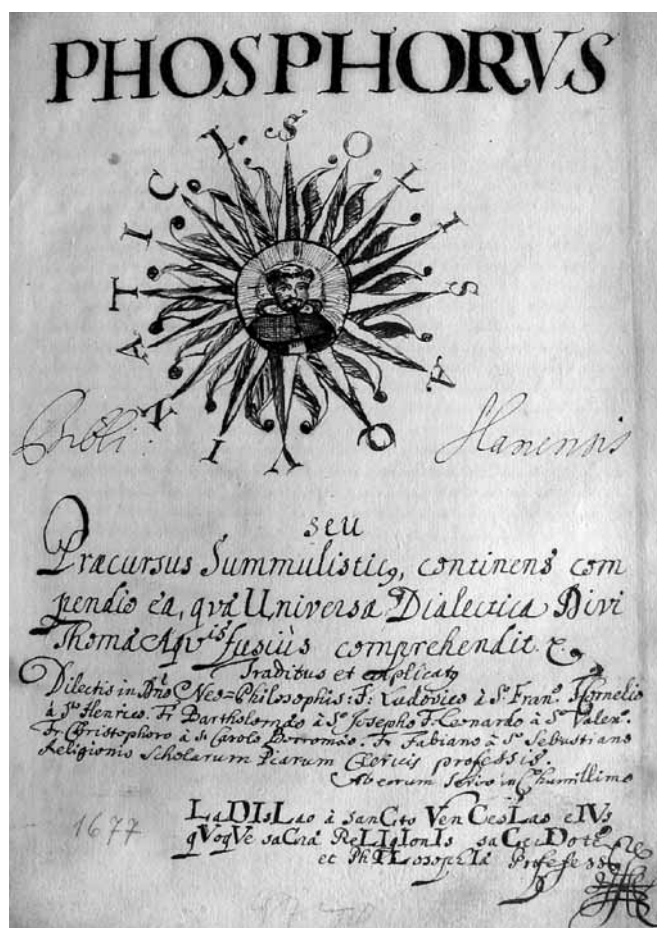 PHOSPHORVS
SOLIS AQVINATICI
Bibli: Slanensis
seu
Præcursus Summulisticq, continens com
pendio ea, quæ Universa Dialectica Divi
Thomæ Aquis fusius comprehendit. &
Traditus et explicatq
Dilectis in Dno Neo=Philosophis: F: Ludovico à So Frano. F. Cornelio
à So Henrico. Fr Bartholomæo à So Josepho F. Leonardo à So Valeno.
Fr Christophoro à S. Carolo Borromæo. Fr Fabiano à So Sebastiano
Religionis Scholarum Piarum Clericis professis.
Ab eorum servo in Chr humillimo
LaDIsLao à sanCto VenCesLao eIVs
qVoqVe saCræ ReLIgIonIs saCerDote
et PhILosophIæ Professo
1677